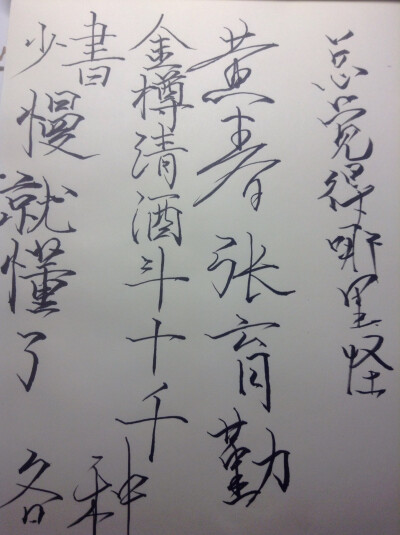 总觉得哪里怪
黄春张育勤
金樽清酒斗十千
書 种
少慢就懂了 各